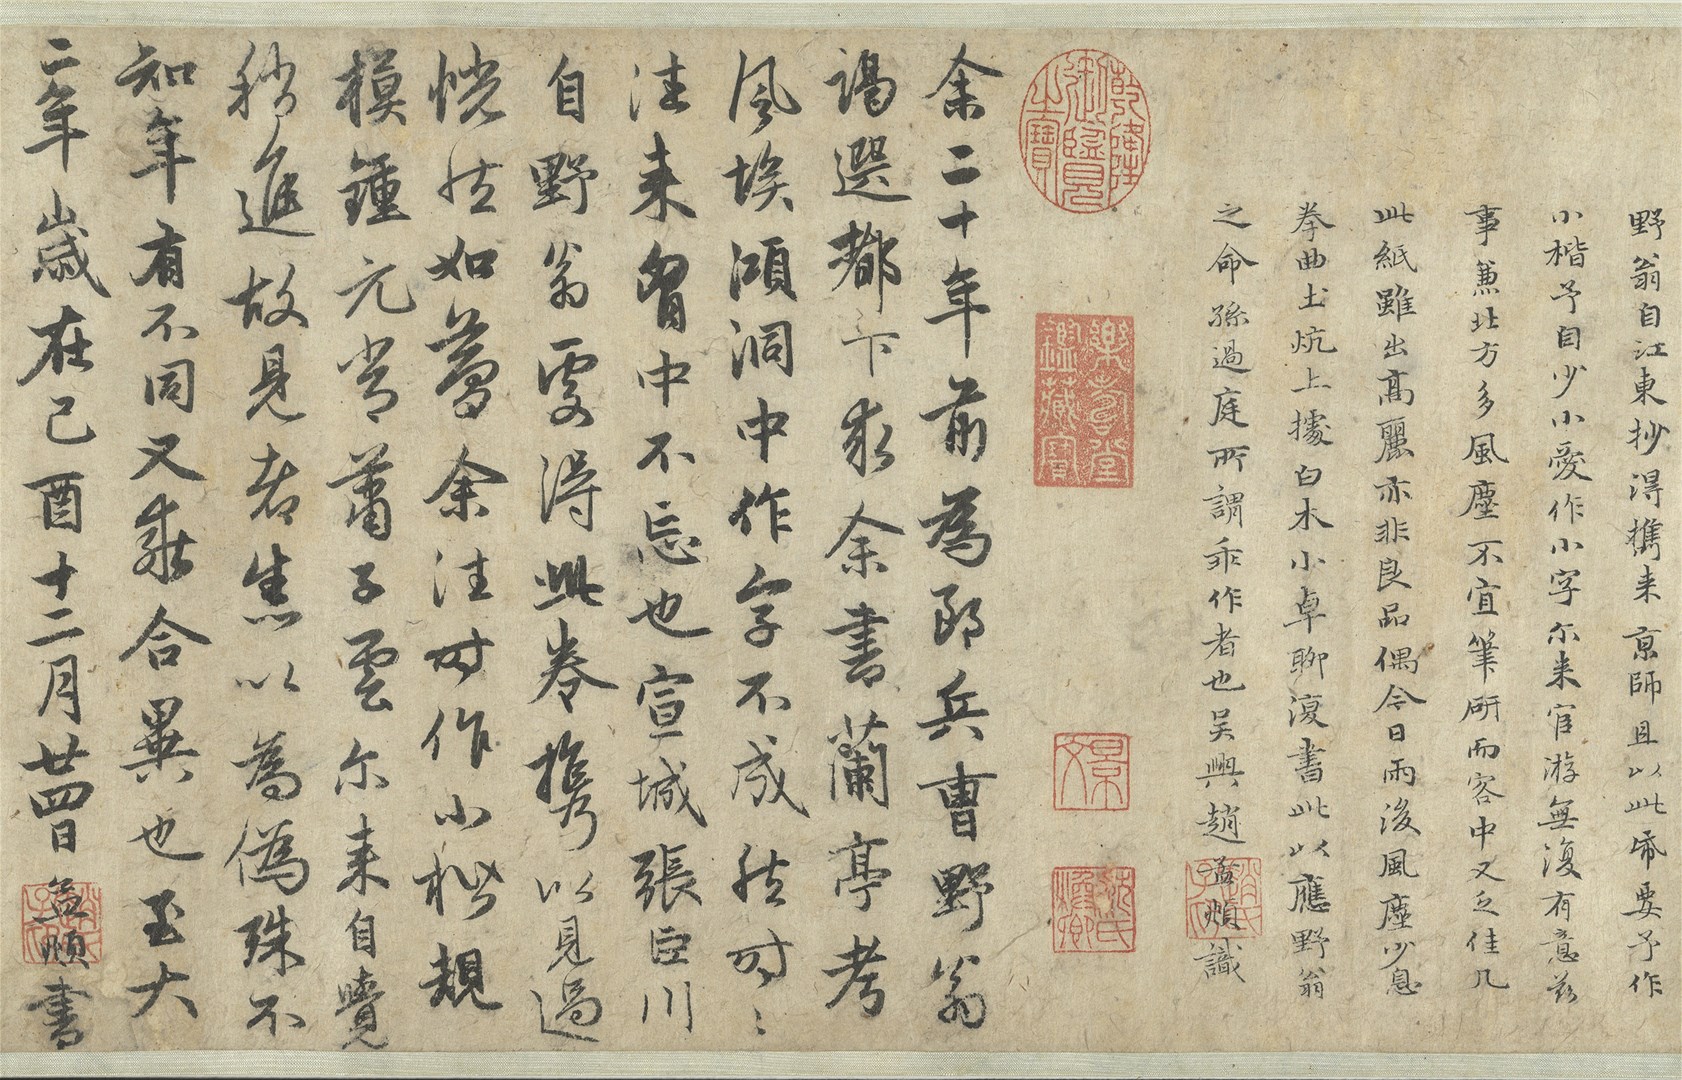 野翁自江東抄得攜来京師且以此帋要予作
小楷予自少小愛作小字尒来官游無復有意兹
事兼北方多風塵不宜筆研而客中又乏佳几
此紙雖出高麗亦非良品偶今日雨後風塵少息
拳曲土炕上據白木小卓聊復書此以應野翁
之命孫過庭所謂乖作者也吳興趙孟頫識
乾隆御覽之寶
樂善堂鑑藏寶
趙氏子昂
余二十年前為郎兵曹野翁
謁選都下求余書蘭亭考
風埃澒洞中作字不成然時〻
往来胷中不忘也宣城張臣川
自野翁㪅得此卷攜以見過
恍然如夢余往時作小楷規
模鍾元常蕭子雲尒来自覺
稍進故見者焦以為偽殊不
知年有不同又乖合異也至大
二年歲在己酉十二月廿四日孟頫書
趙氏子昂